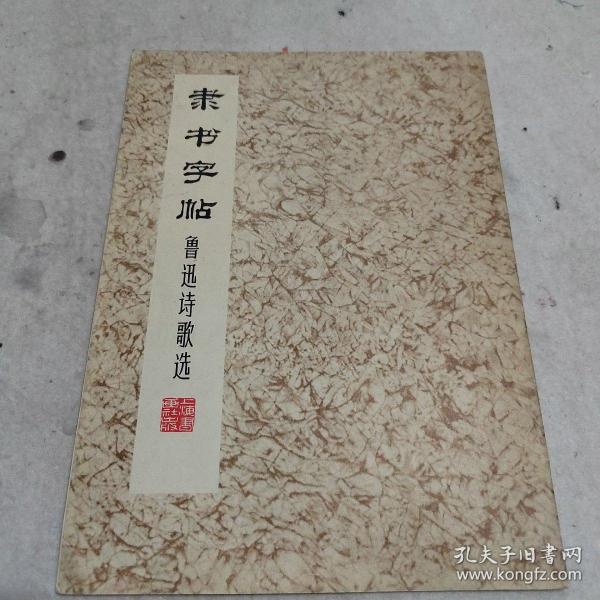 隶书字帖
鲁迅诗歌选
上海书画社藏
孔夫子旧书网
www.kongfz.com